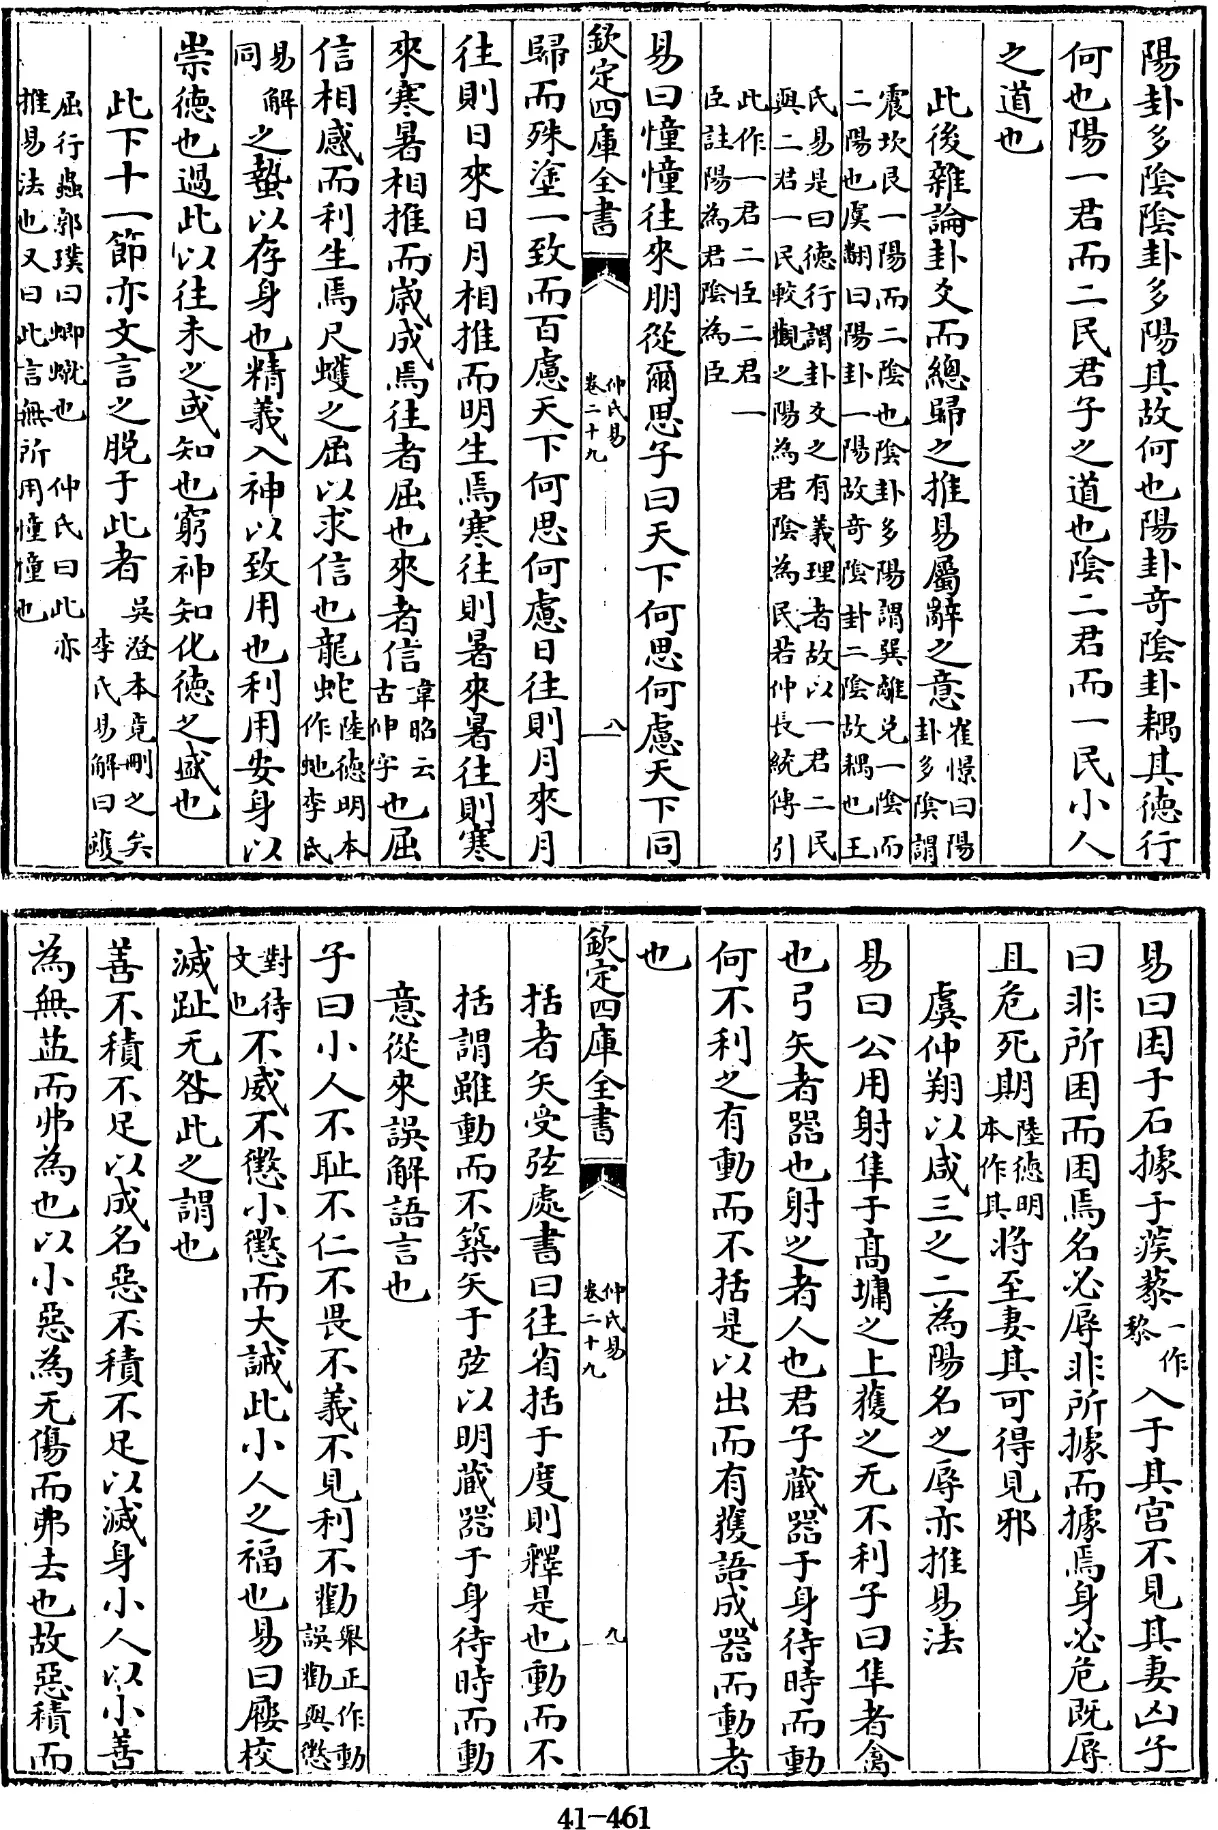 陽卦多陰陰卦多陽其故何也陽卦奇陰卦耦其徳行
何也陽一君而二民君子之道也陰二君而一民小人
之道也
此後雜論卦爻而總歸之推易屬辭之意崔憬曰陽卦多隂謂
震坎艮一陽而二陰也陰卦多陽謂巽離兌一陰而二陽也虞翻曰陽卦一陽故奇陰卦二陰故耦也王
氏易是曰徳行謂卦爻之有義理者故以一君二民與二君一民較觀之陽為君陰為民若仲長統傳引
此作一君二臣二君一臣註陽為君陰為臣
易曰憧憧往來朋從爾思子曰天下何思何慮天下同
欽定四庫全書 仲氏易卷二十九 八
歸而殊塗一致而百慮天下何思何慮日往則月來月
往則日來日月相推而明生焉寒往則暑來暑往則寒
來寒暑相推而歲成焉往者屈也來者信韋昭云古伸字也屈
信相感而利生焉尺蠖之屈以求信也龍蛇陸德明本作虵李氏
易解同之蟄以存身也精義入神以致用也利用安身以
崇徳也過此以往未之或知也窮神知化徳之盛也
此下十一節亦文言之脫于此者吳澄本竟刪之矣李氏易解曰蠖
屈行蟲郭璞曰蝍𧎿也 仲氏曰此亦推易法也又曰此信無所用憧憧也
易曰困于石據于蒺藜一作棃入于其宮不見其妻凶子
曰非所困而困焉名必辱非所據而據焉身必危既辱
且危死期陸德明本作其將至妻其可得見邪
虞仲翔以咸三之二為陽名之辱亦推易法
易曰公用射隼于髙墉之上獲之无不利子曰隼者禽
也弓矢者器也射之者人也君子藏器于身待時而動
何不利之有動而不括是以出而有獲語成器而動者
也
欽定四庫全書 仲氏易卷二十九 九
括者矢受弦處書曰往省括于度則釋是也動而不
括謂雖動而不築矢于弦以明藏器于身待時而動
意從來誤解語言也
子曰小人不恥不仁不畏不義不見利不勸舉正作動誤勸與懲
對待文也不威不懲小懲而大誡此小人之福也易曰屨校
滅趾无咎此之謂也
善不積不足以成名惡不積不足以滅身小人以小善
為無益而弗為也以小惡為无傷而弗去也故惡積而
41-461